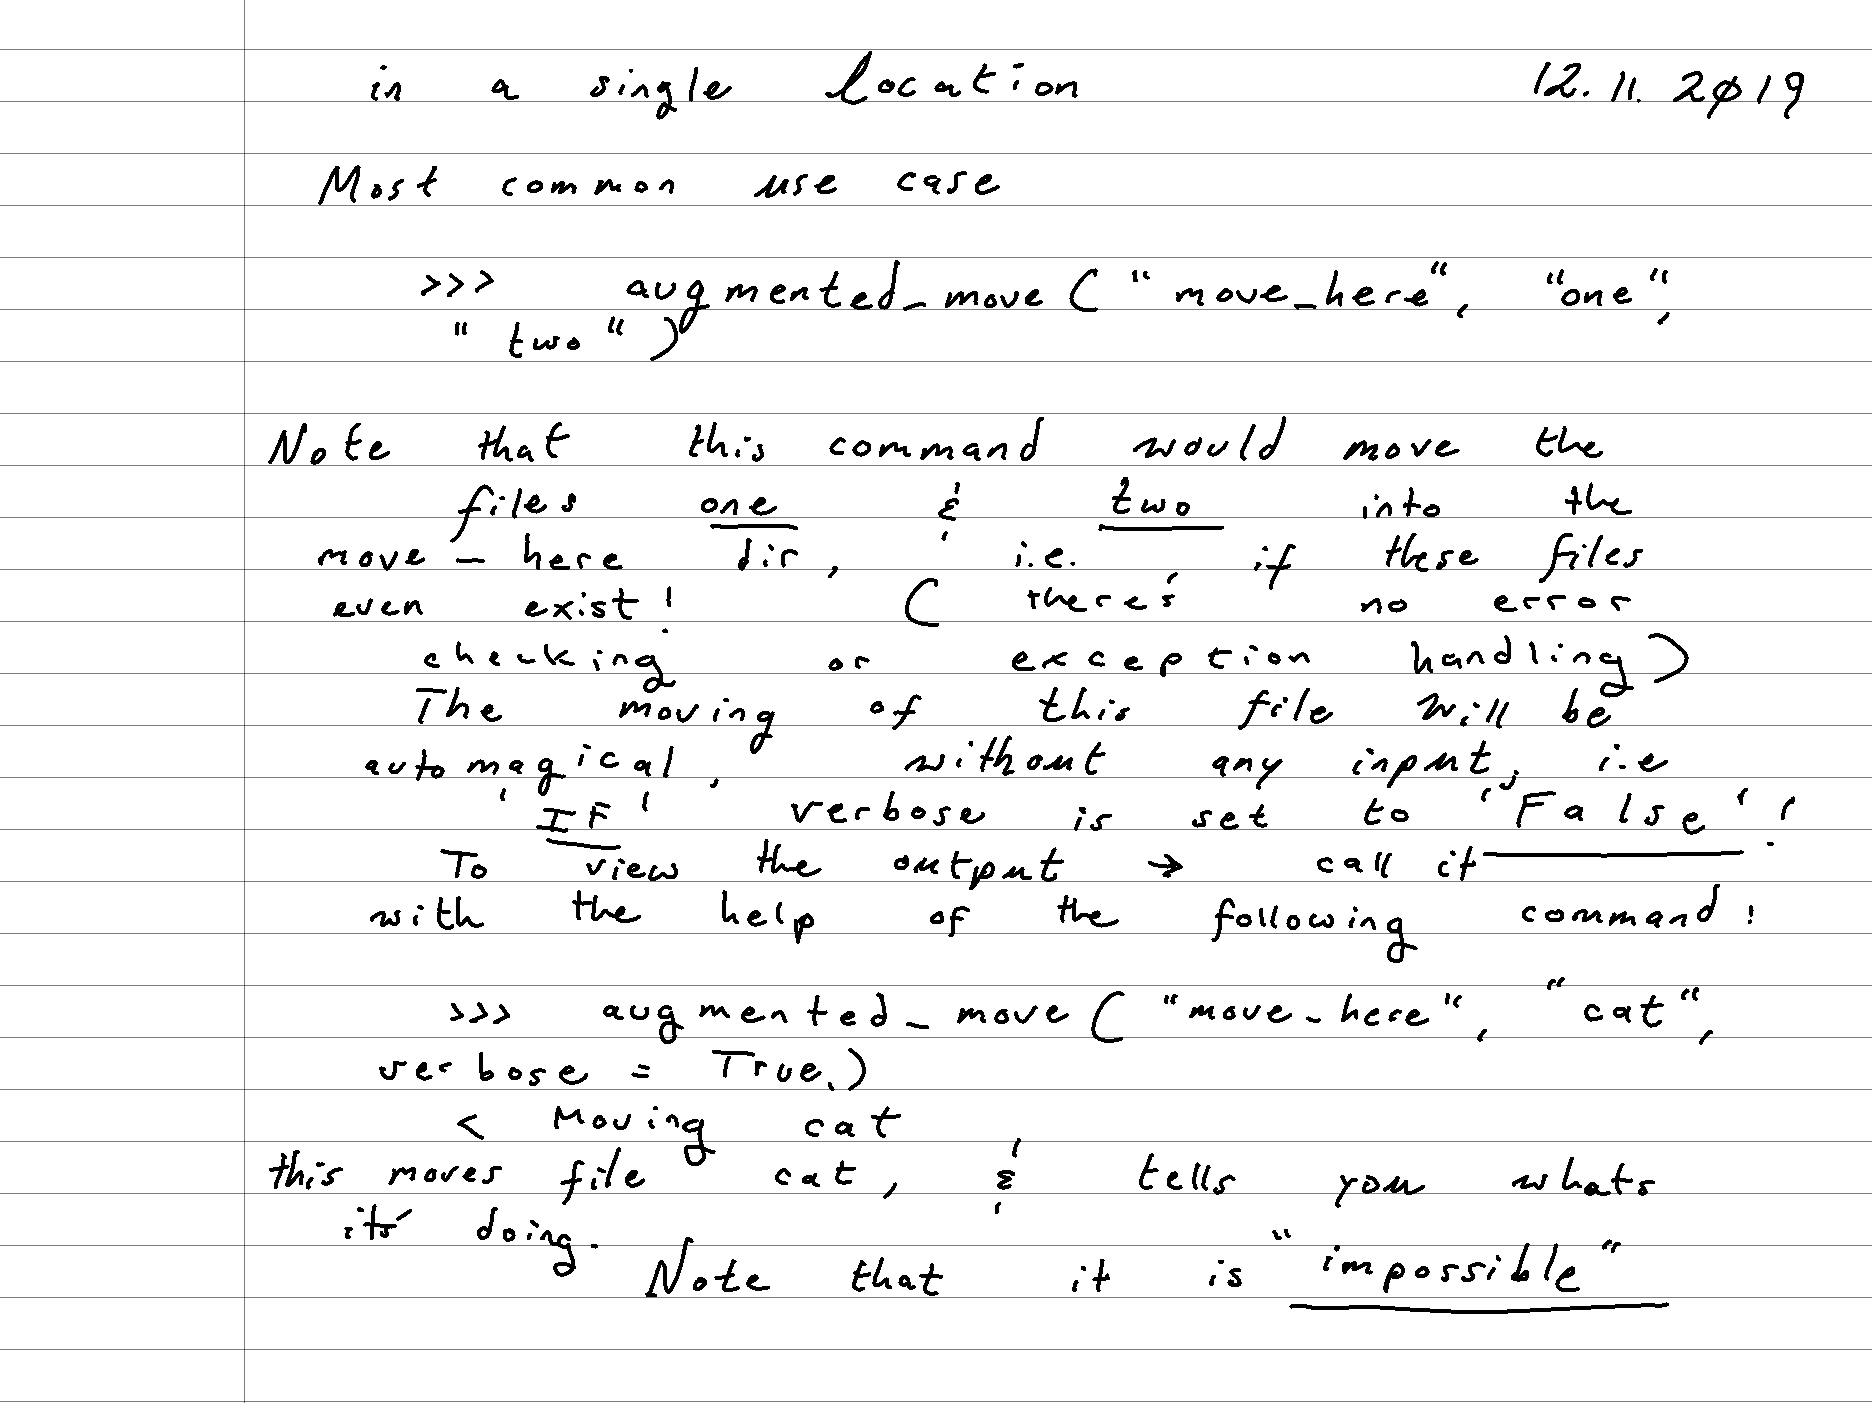 in a single location 12.11.2019
Most common use case
>>> augmented_move ( "move_here", "one",
"two" )
Note that this command would move the
files one & two into the
move_here dir, i.e. if these files
even exist! ( there's no error
checking or exception handling)
The moving of this file will be
automagical, without any input, i.e
'IF' verbose is set to 'False'!
To view the output → call it
with the help of the following command!
>>> augmented_move ( "move_here", "cat",
verbose = True,)
< Moving cat
this moves file cat, & tells you whats
it's doing.
Note that it is "impossible"